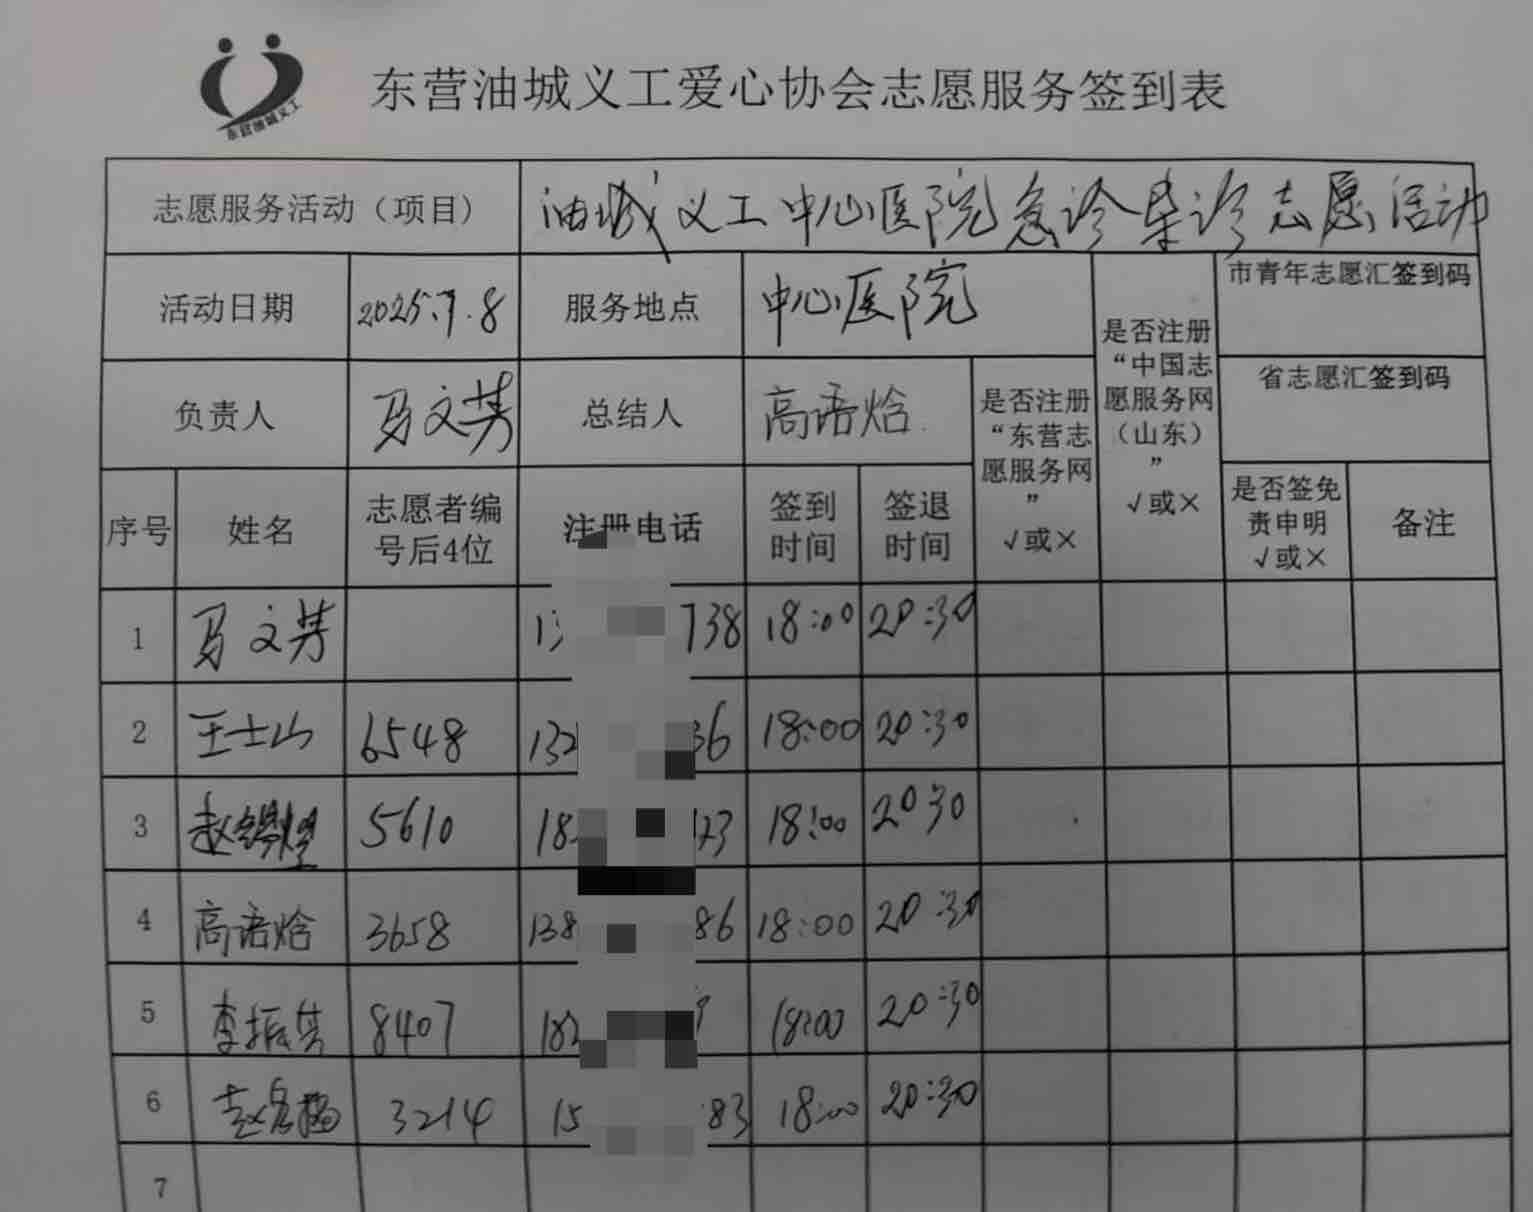 东营油城义工
东营油城义工爱心协会志愿服务签到表
志愿服务活动（项目） 油城义工中心医院急诊导诊志愿活动
活动日期 2025.7.8 服务地点 中心医院
是否注册“中国志愿服务网（山东）” √或×
市青年志愿汇签到码
省志愿汇签到码
负责人 马文芳 总结人 高语焓
是否注册“东营志愿服务网” √或×
序号 姓名 志愿者编号后4位 注册电话 签到时间 签退时间 是否签免责申明 √或× 备注
1 马文芳 13 738 18:00 20:30
2 王士山 6548 132 36 18:00 20:30
3 赵 5610 18 123 18:00 20 30
4 高语焓 3658 138 86 18:00 20:30
5 李振 8407 182 18:00 20:30
6 赵 3214 15 83 18:00 20:30
7